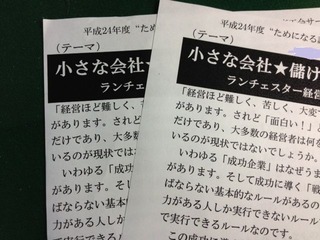 平成24年度 "ため
(テーマ)
小さな会社★
ランチェス
「経営ほど難しく、苦
があります。されど「
だけであり、大多数の
いるのが現状ではな
いわゆる「成功企
があります。そして成
ばならない基本的な
力がある人しか実行
で実行できるルー
平成24年度 "ためになる
(テーマ)
小さな会社★儲け
ランチェスター経営
「経営ほど難しく、苦しく、大変
があります。されど「面白い！」と
だけであり、大多数の経営者は何を
いるのが現状ではないでしょうか。
いわゆる「成功企業」はなぜうま
があります。そして成功に導く「戦
ばならない基本的なルールがあるの
力がある人しか実行できないルール
で実行できるルールなのです。
この成功に導